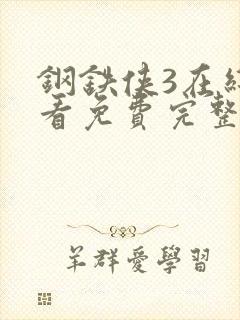 鋼鉄侠3在線
看免費完整
羊群愛學習